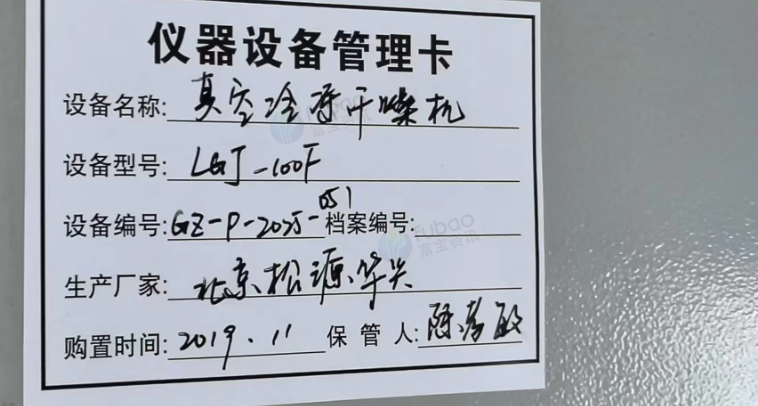 仪器设备管理卡
设备名称: 真空冷冻干燥机
设备型号: LGJ-100F
设备编号: GZ-P-2035-051 档案编号:
生产厂家: 北京松源华兴
购置时间: 2019.11 保管人: 陈秀敏
fubao
富宝资讯